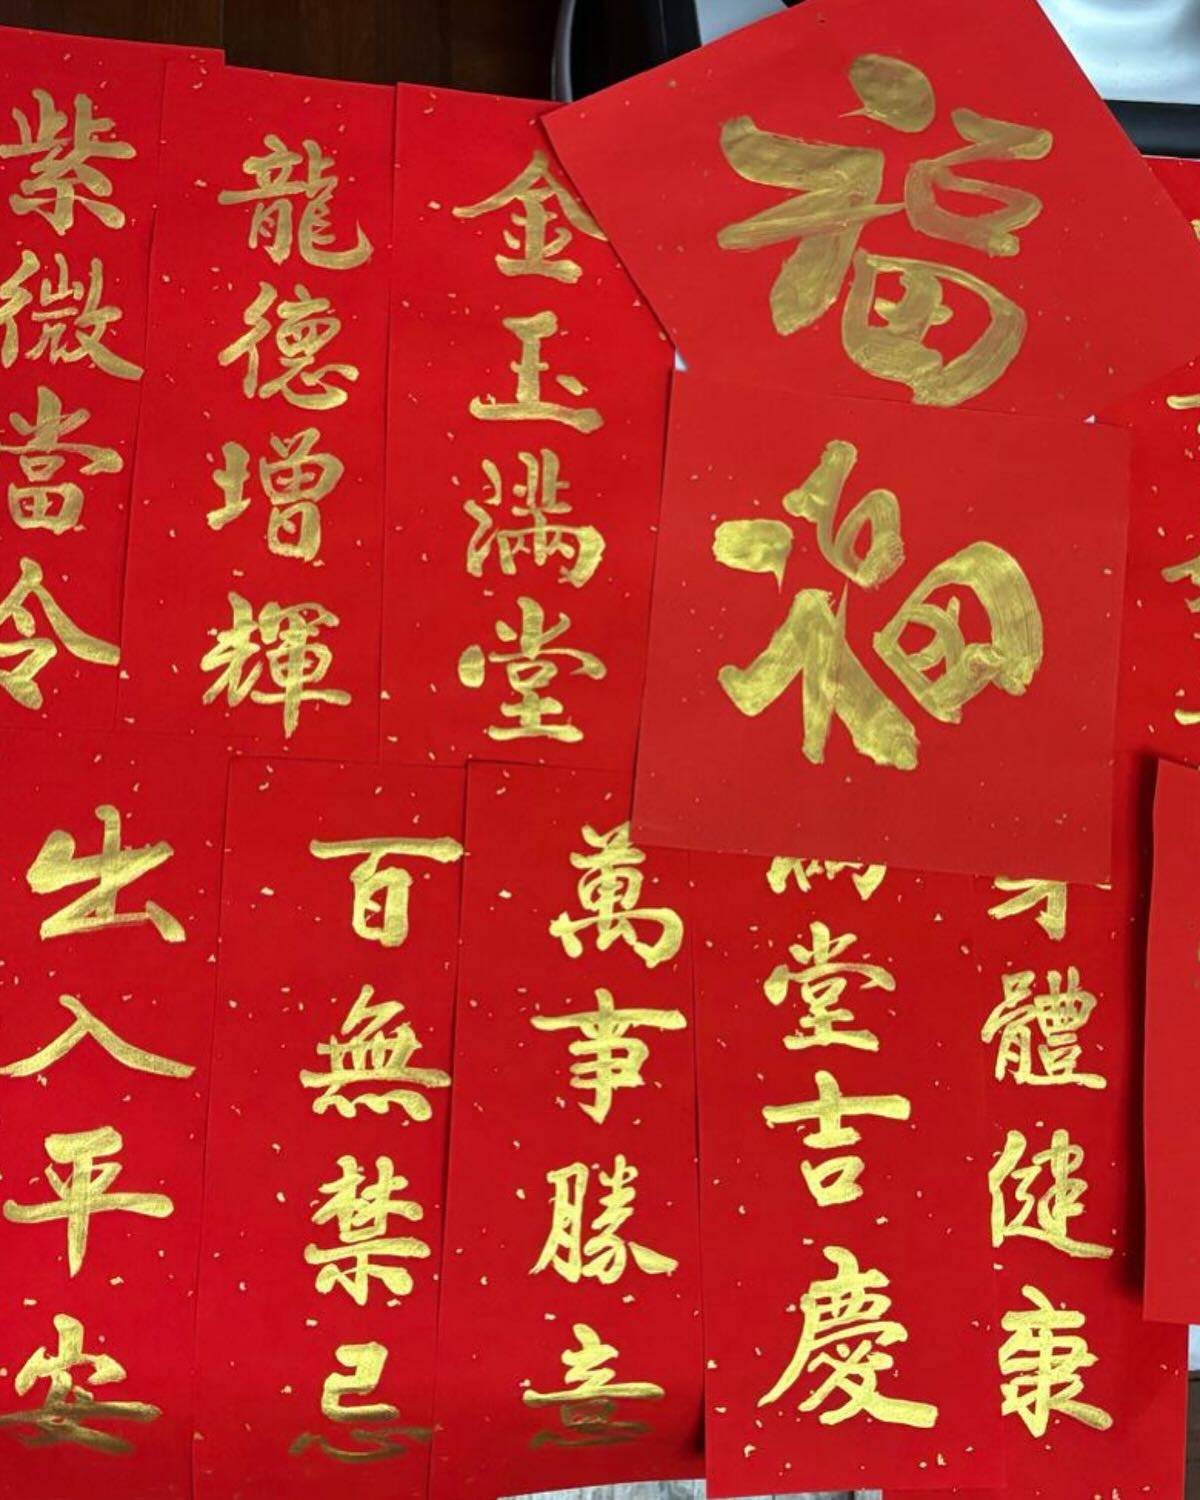 紫微當令
龍德增輝
金玉滿堂
福
福
出入平安
百無禁忌
萬事勝意
滿堂吉慶
身體健康